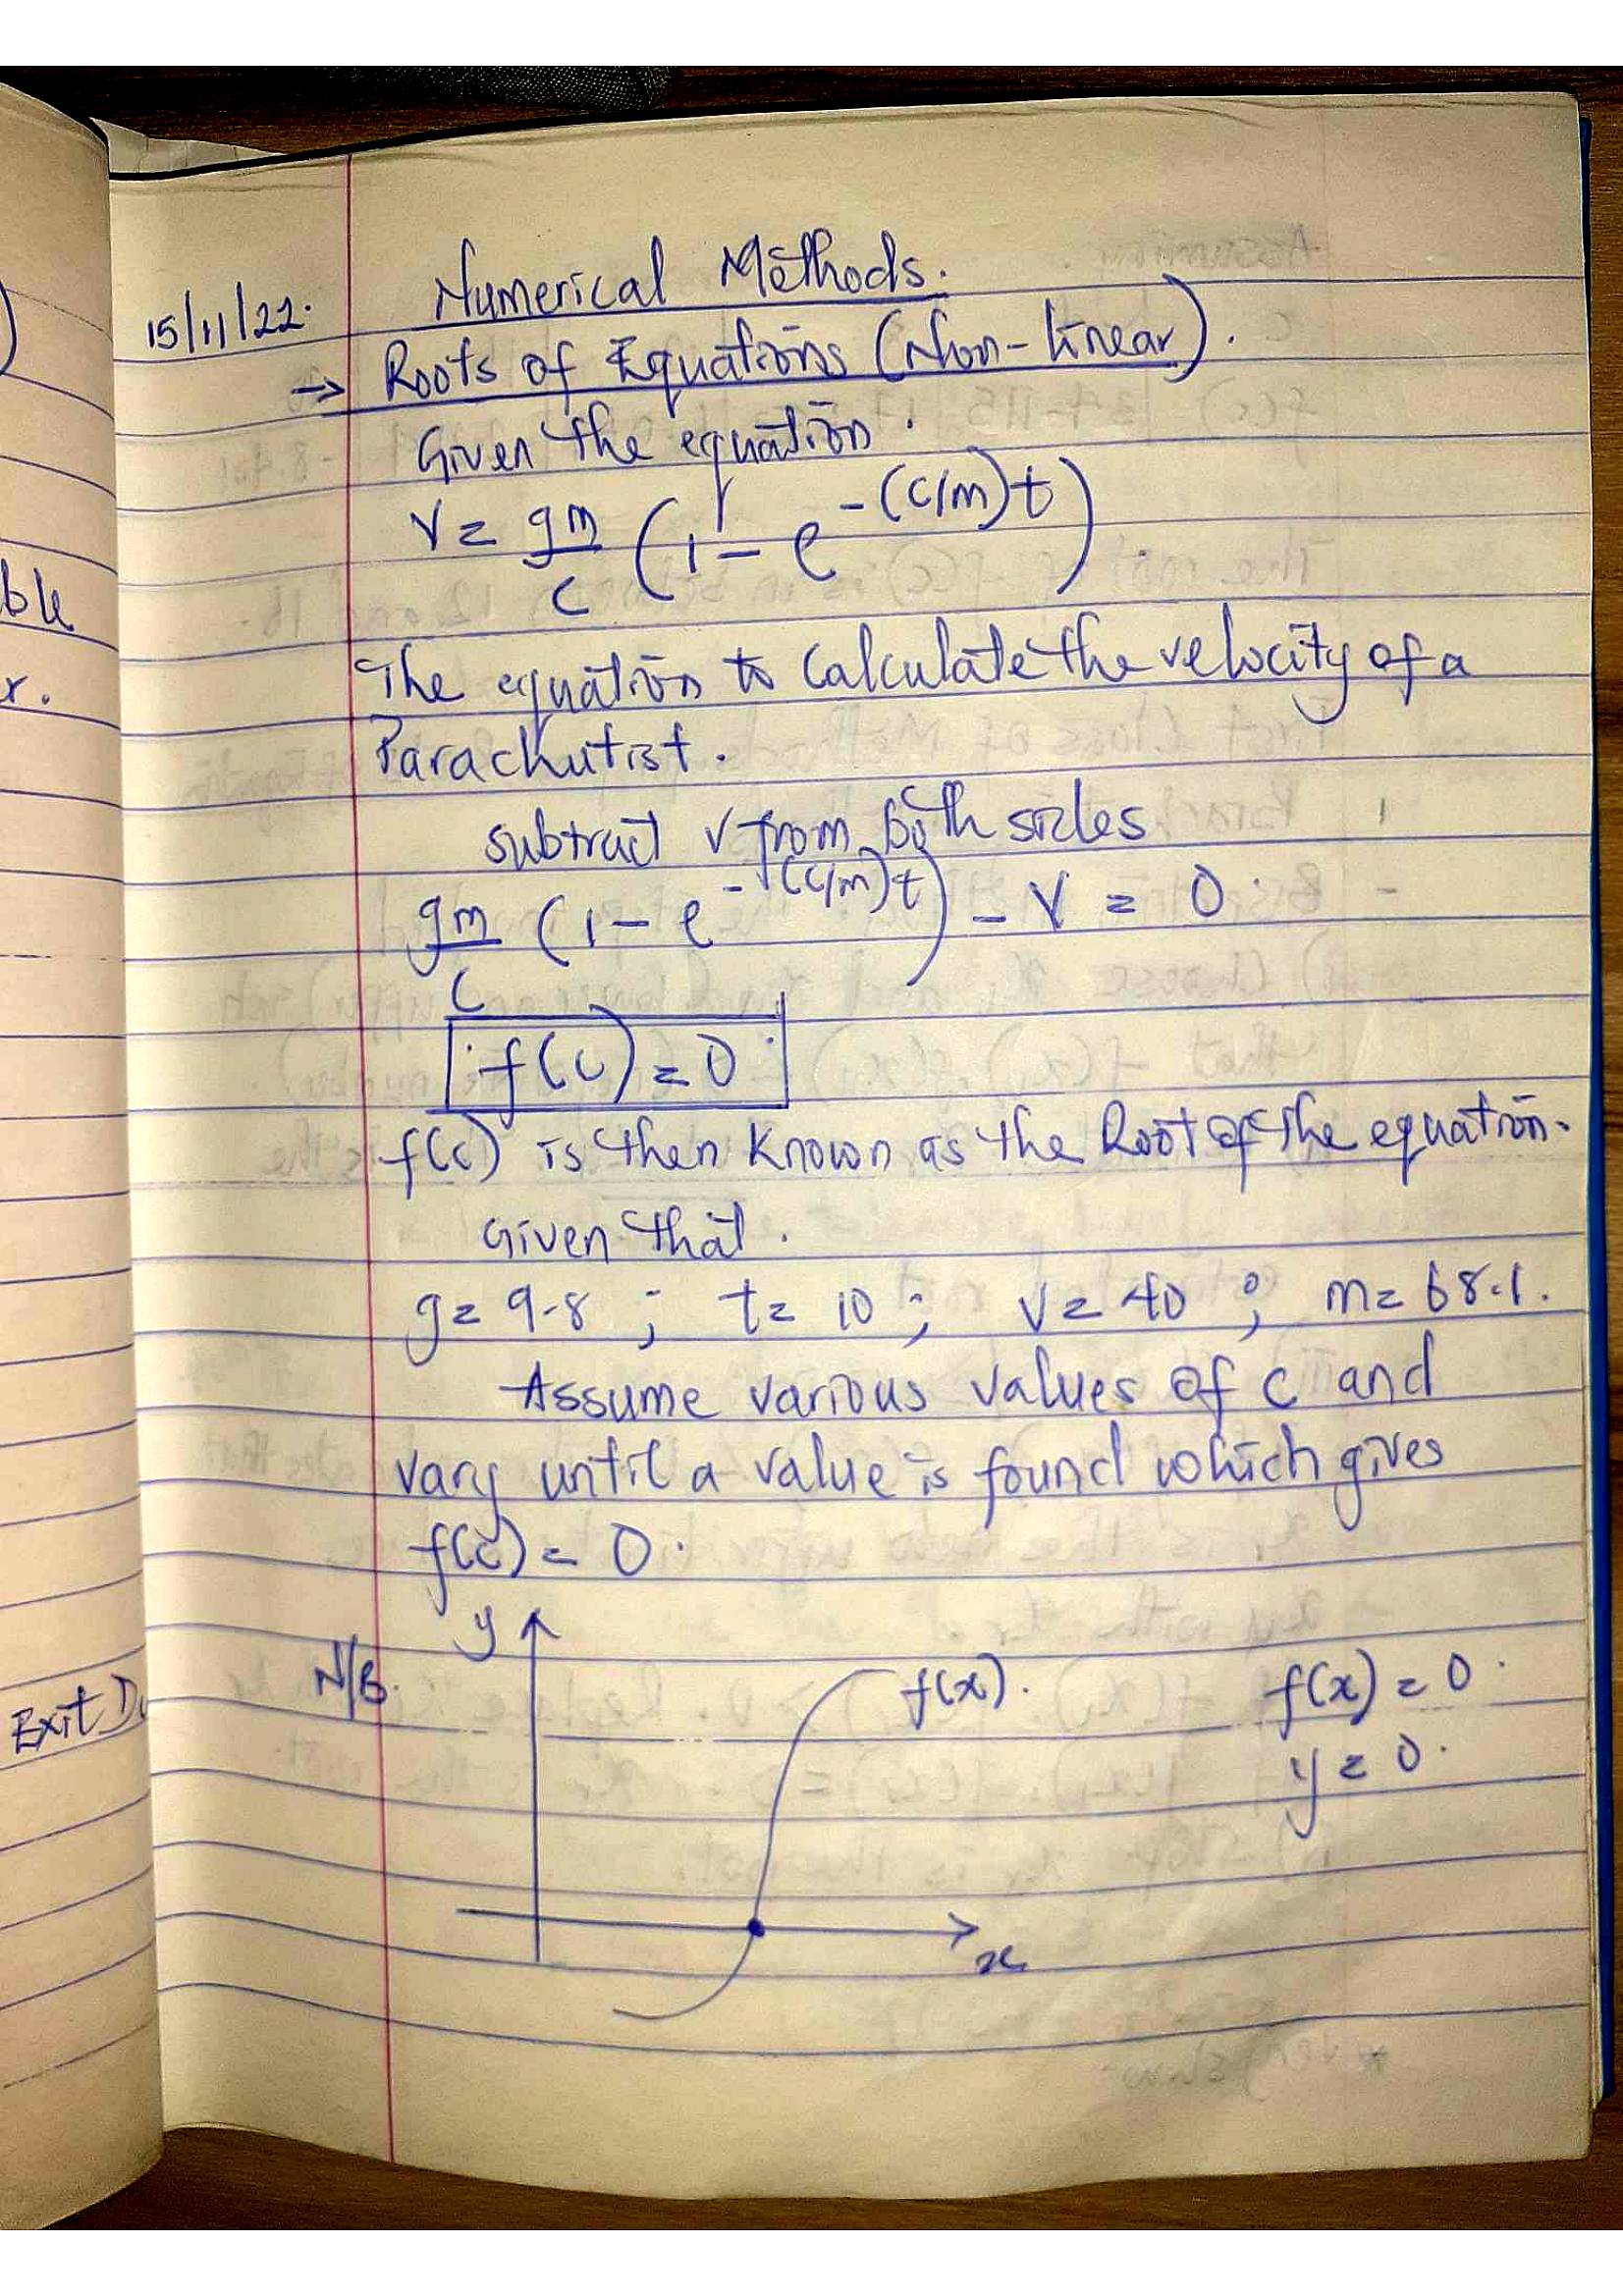 Numerical Methods.
15/11/22.
→ Roots of Equations (Non-linear).
Given the equation.
V = gm/c (1 - e^-(c/m)t).
The equation to calculate the velocity of a
Parachutist.
subtract v from both sides
gm/c (1 - e^-(c/m)t) - V = 0.
f(c) = 0
f(c) is then known as the Root of the equation.
Given that.
g = 9.8 ; t = 10 ; V = 40 ; m = 68.1.
Assume various values of c and
vary until a value is found which gives
f(c) = 0.
y
N/B.
f(x).
f(x) = 0.
y = 0.
x
ble
r.
Exit